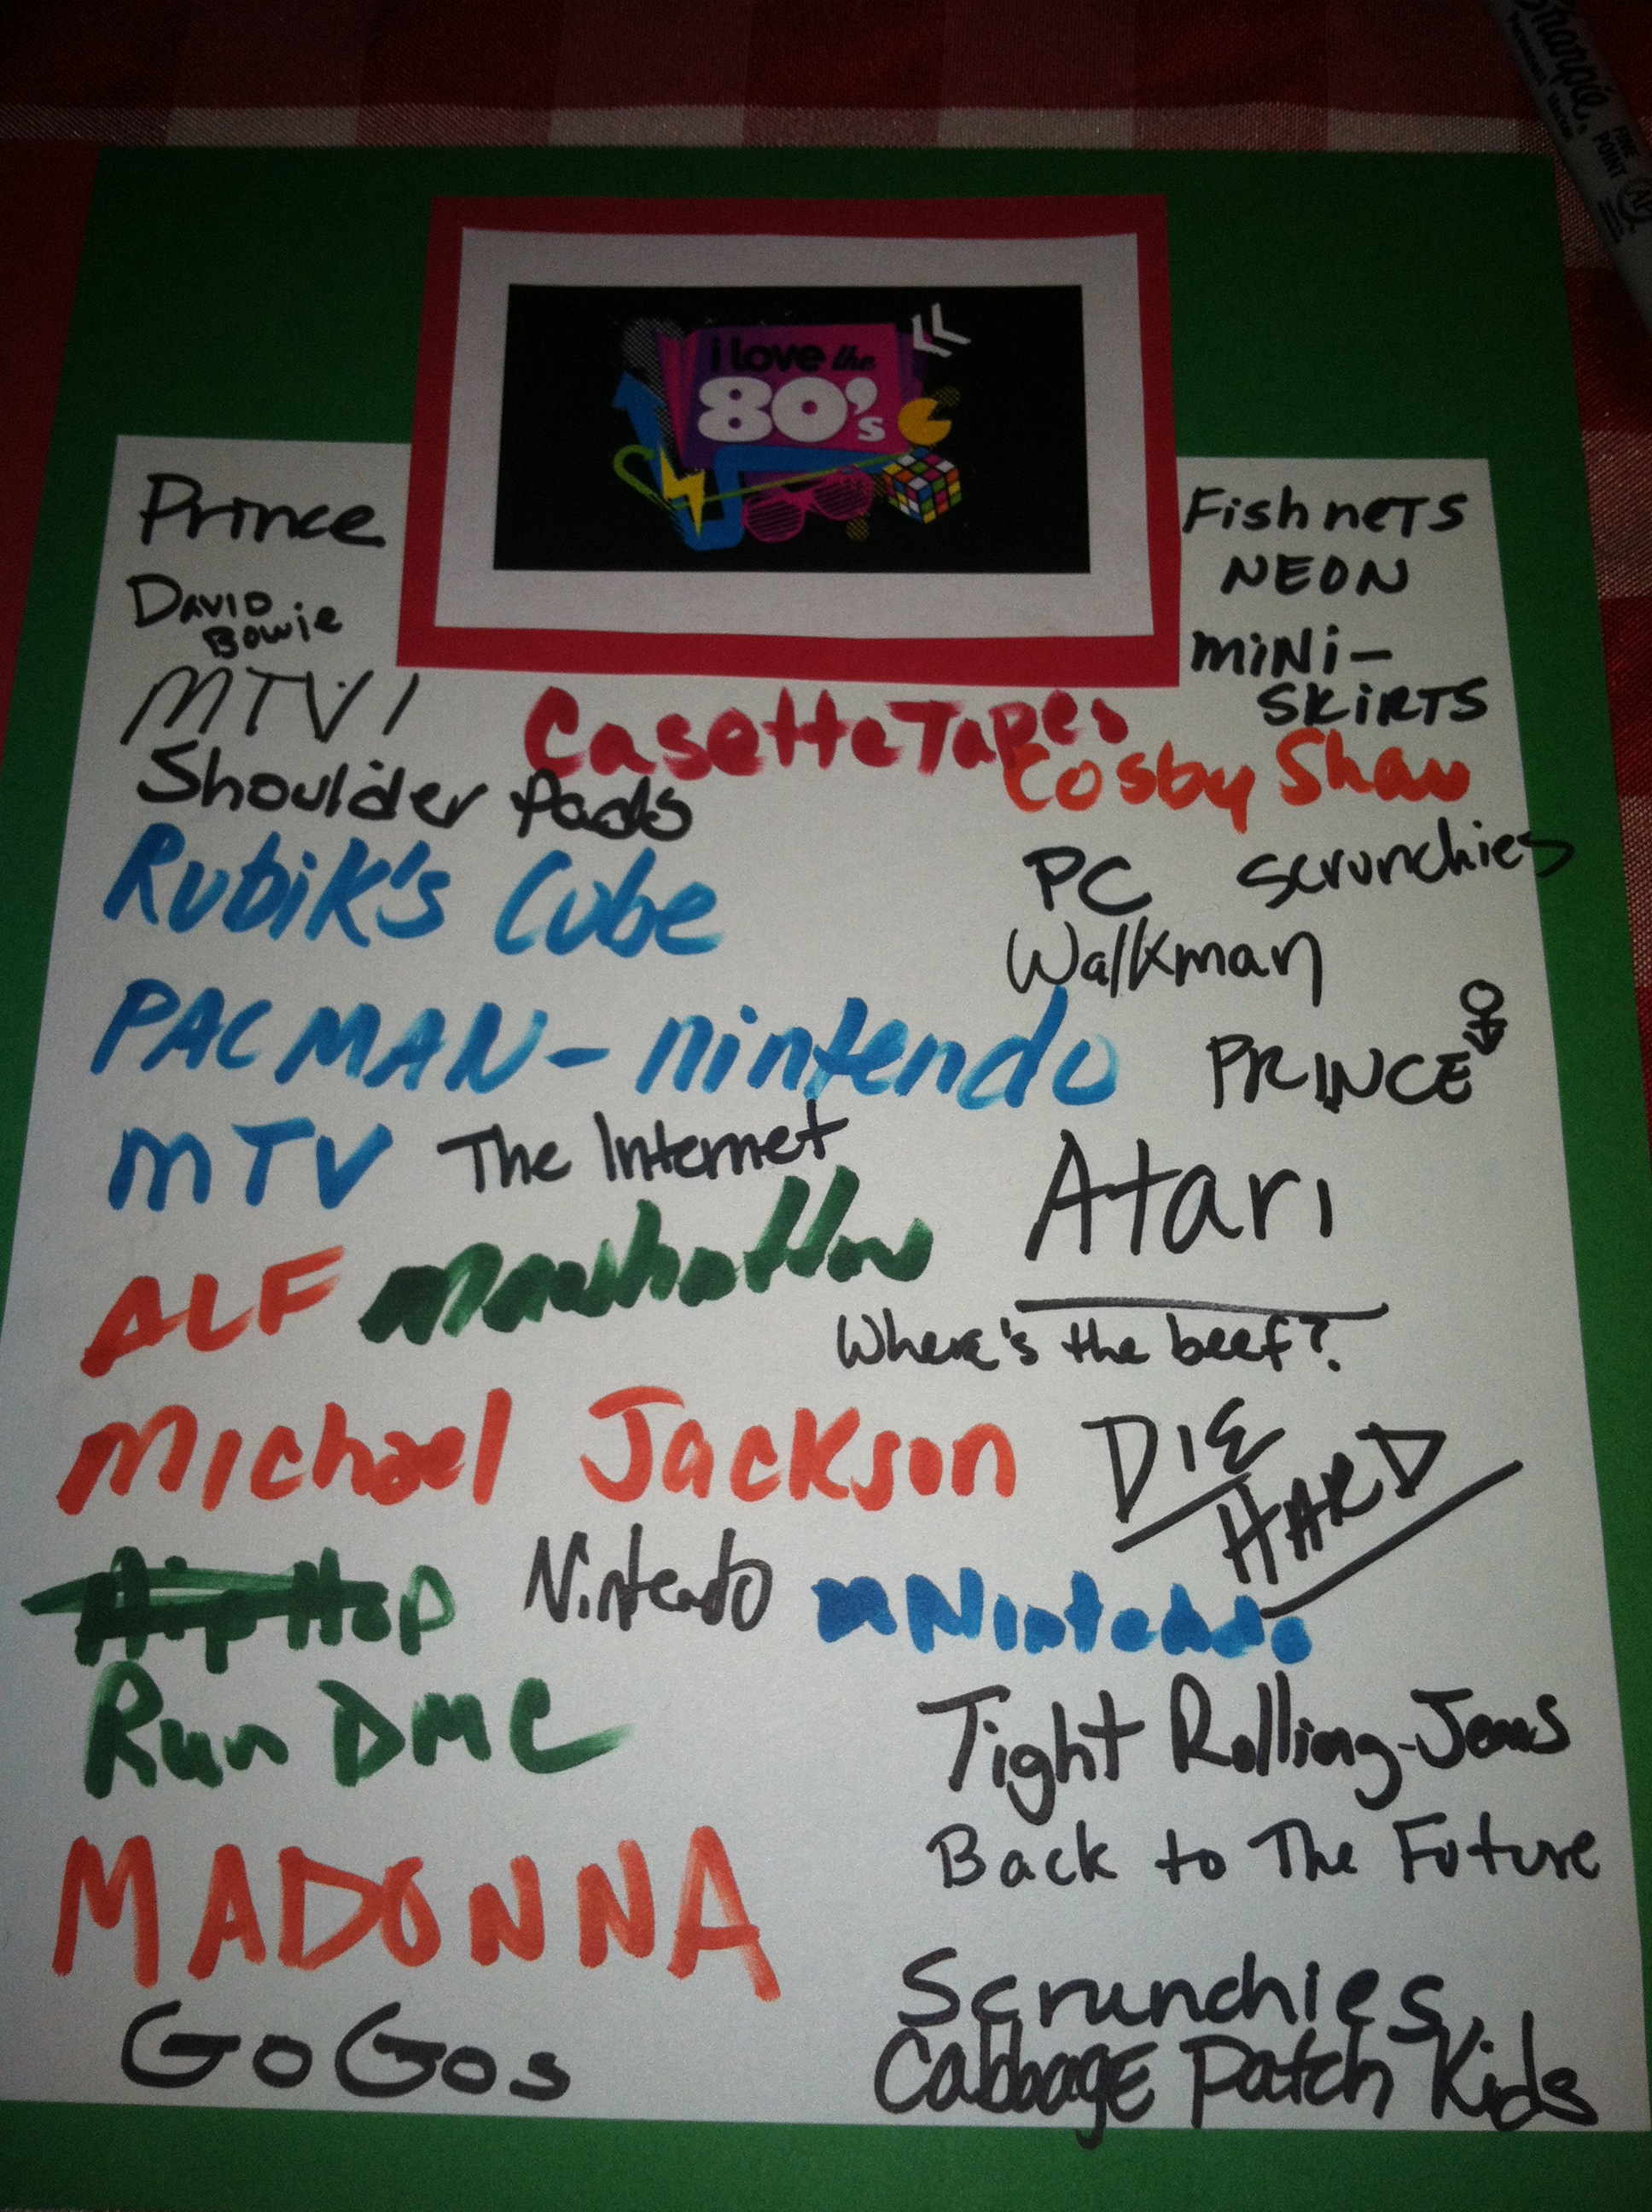 Sharpie.
FINE
POINT
i love the
80's
Prince
DAVID
Bowie
MTV!
Shoulder Pads
Casette Tapes
Fishnets
NEON
MiNi-
SKIRTS
Cosby Show
Rubik's Cube
PC
Scrunchies
Walkman
PACMAN - nintendo
PRINCE
MTV
The Internet
Atari
ALF
Where's the beef?
Michael Jackson
DIE
HARD
Hip Hop
Nintendo
Nintendo
Run DMC
Tight Rolling-Jeans
Back to The Future
MADONNA
Scrunchies
GoGos
Cabbage Patch Kids